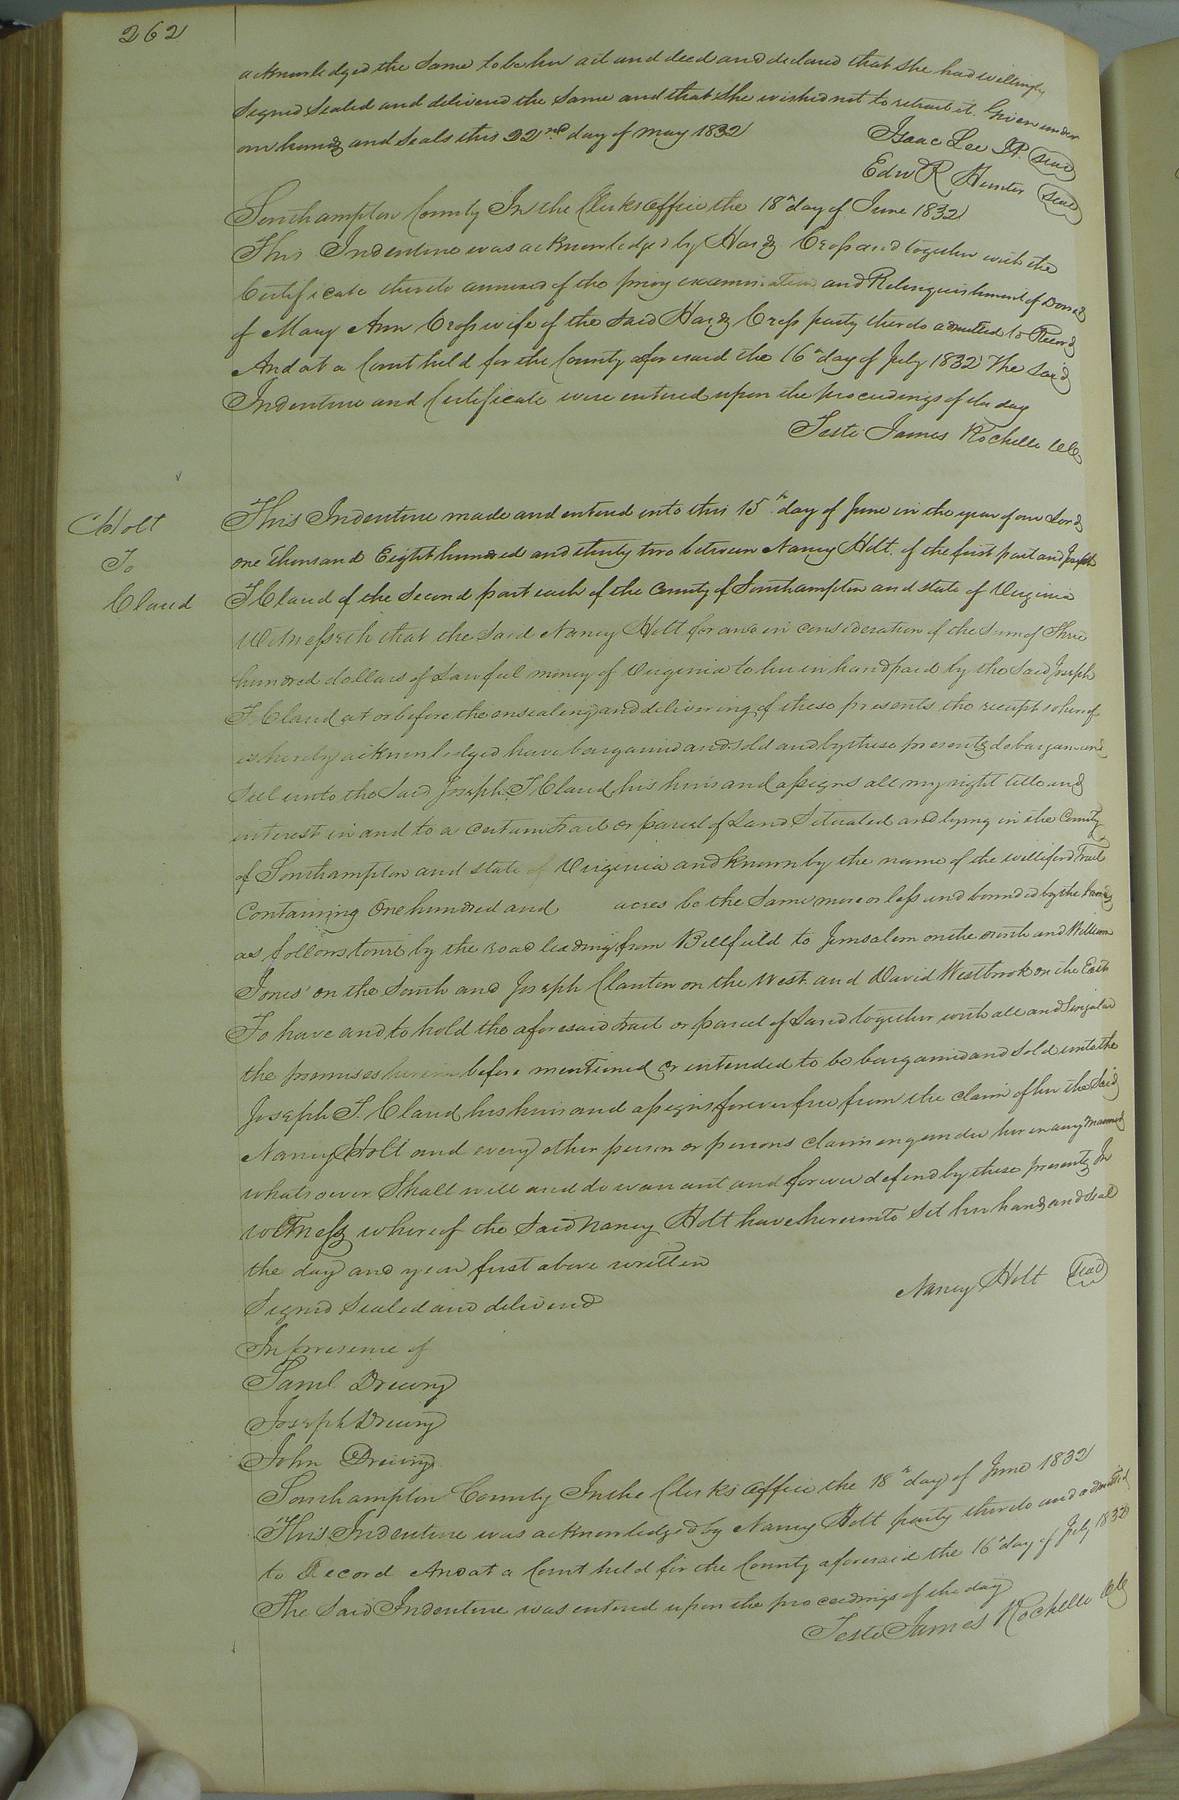 262
acknowledged the same to be her act and deed and declared that she had willingly
signed sealed and delivered the same and that she wished not to retract it. Given under
our hands and seals this 22nd day of May 1832
Isaac Lee J.P. (seal)
Edw R Hunter (seal)
Southampton County In the Clerks office the 18th day of June 1832
This Indenture was acknowledged by Hardy Cross and together with the
Certificate thereto annexed of the privy examination and Relinquishment of Dower
of Mary Ann Cross wife of the said Hardy Cross party thereto admitted to Record
And at a Court held for the County aforesaid the 16th day of July 1832 The said
Indenture and Certificate were entered upon the proceedings of the day
Teste James Rochelle CC
Holt
To
Claud
This Indenture made and entered into this 15th day of June in the year of our Lord
one Thousand Eight hundred and thirty two between Nancy Holt of the first part and Joseph
T Claud of the Second part each of the County of Southampton and state of Virginia
Witnesseth that the said Nancy Holt for and in consideration of the sum of Three
hundred dollars of Lawful money of Virginia to her in hand paid by the said Joseph
T. Claud at or before the ensealing and delivering of these presents the receipt whereof
is hereby acknowledged have bargained and sold and by these presents do bargain and
sell unto the said Joseph T Claud his heirs and assigns all my right title and
interest in and to a certain tract or parcel of Land Situated and lying in the County
of Southampton and state of Virginia and known by the name of the williford Tract
Containing One hundred and acres be the same more or less and bounded by the
as follows towit by the road leading from Bellfield to Jerusalem on the north and William
Jones' on the South and Joseph Clanton on the West and David Westbrook on the East
To have and to hold the aforesaid tract or parcel of Land together with all and Singular
the premises herein before mentioned or intended to be bargained and sold unto the
Joseph T. Claud his heirs and assigns forever free from the claim of her the said
Nancy Holt and every other person or persons claiming under her in any manner
whatsoever Shall will and do warrant and forever defend by these presents In
witness whereof the said Nancy Holt have hereunto set her hand and seal
the day and year first above written
Nancy Holt (seal)
Signed Sealed and delivered
In presence of
Saml. Drewry
Joseph Drewry
John Drewry
Southampton County In the Clerks office the 18th day of June 1832
This Indenture was acknowledged by Nancy Holt party thereto and admitted
to Record And at a Court held for the County aforesaid the 16th day of July 1832
The said Indenture was entered upon the proceedings of the day
Teste James Rochelle CC